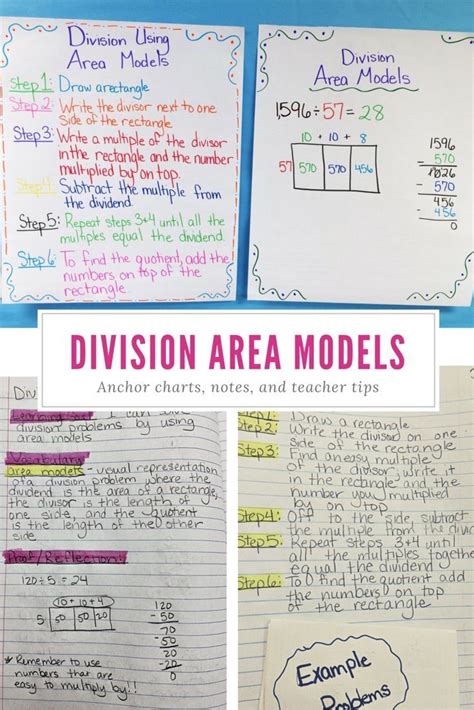 Division Using
Area Models
Step 1: Draw a rectangle
Step 2: Write the divisor next to one
side of the rectangle.
Step 3: Write a multiple of the divisor
in the rectangle and the number
multiplied by on top.
Step 4: Subtract the multiple from
the dividend.
Step 5: Repeat steps 3+4 until all the
multiples equal the dividend.
Step 6: To find the quotient, add the
numbers on top of the
rectangle.
Division
Area Models
1,596÷57=28
10 + 10 + 8
57 570 570 456
1596
- 570
1026
- 570
456
- 456
0
DIVISION AREA MODELS
Anchor charts, notes, and teacher tips
I can solve
division problems by using
area models
Vocabulary
area models - visual representation
of a division problem where the
dividend is the area of a rectangle,
the divisor is the length of
one side, and the quotient
is the length of the other
side.
Proof/Reflection:
120÷5=24
10+10+4
5 50 50 20
120
-50
70
-50
20
-20
0
*Remember to use
numbers that are
easy to multiply by!!
Step 1: Draw a rectangle
Step 2: Write the divisor on one
side of the rectangle
Step 3: Find an easy multiple
of the divisor, write it
in the rectangle and the
number you multiplied
by on top
Step 4: Off to the side, subtract
the multiple from the dividend
Step 5: Repeat steps 3+4 until
all the multiples together
equal the dividend.
Step 6: To find the quotient add
the numbers on top of
the rectangle.
Example
Problems